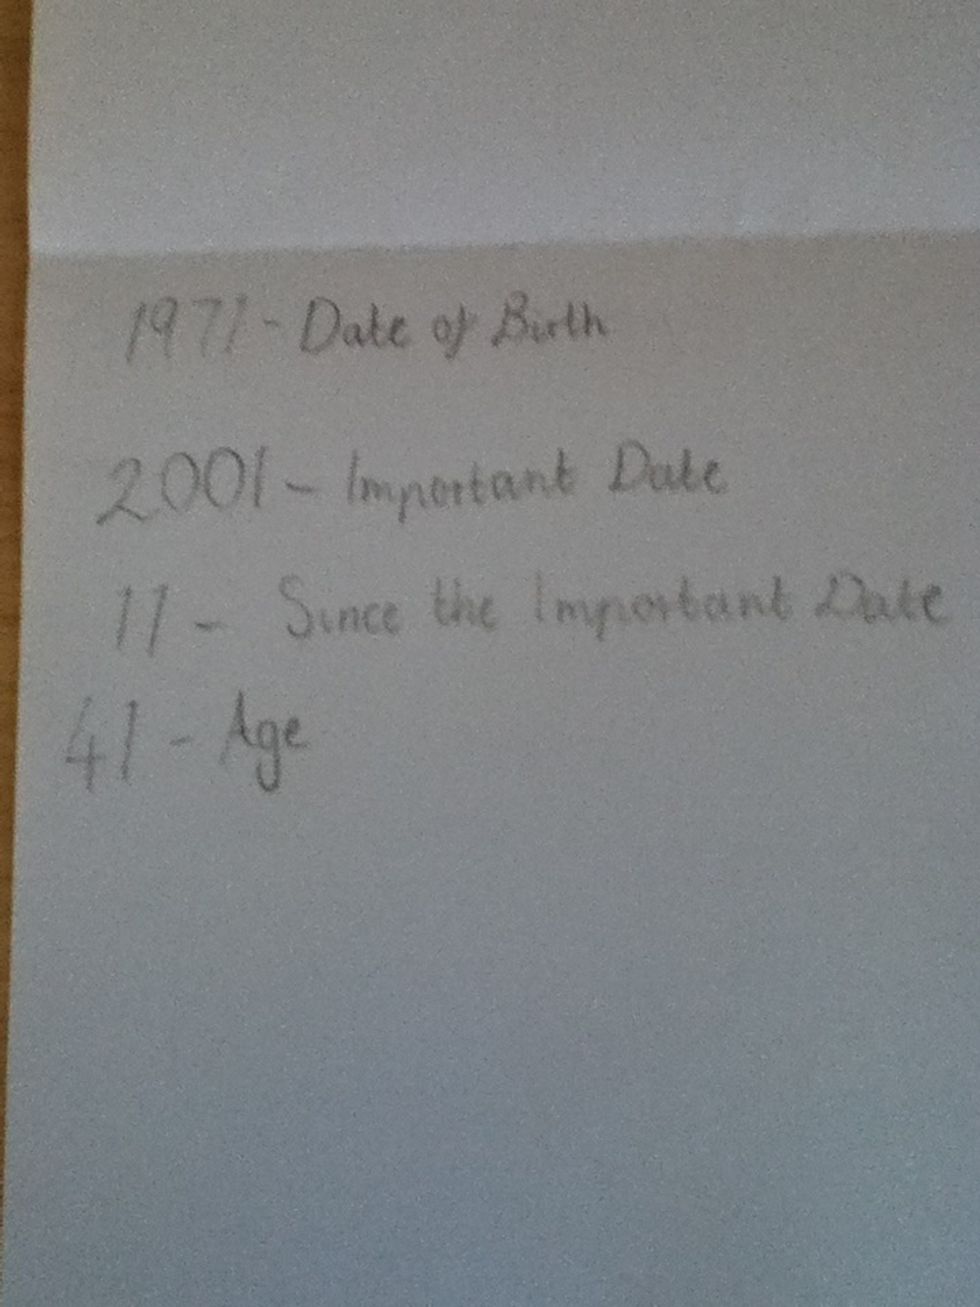 1971 - Date of Birth
2001 - Important Date
11 - Since the Important Date
41 - Age